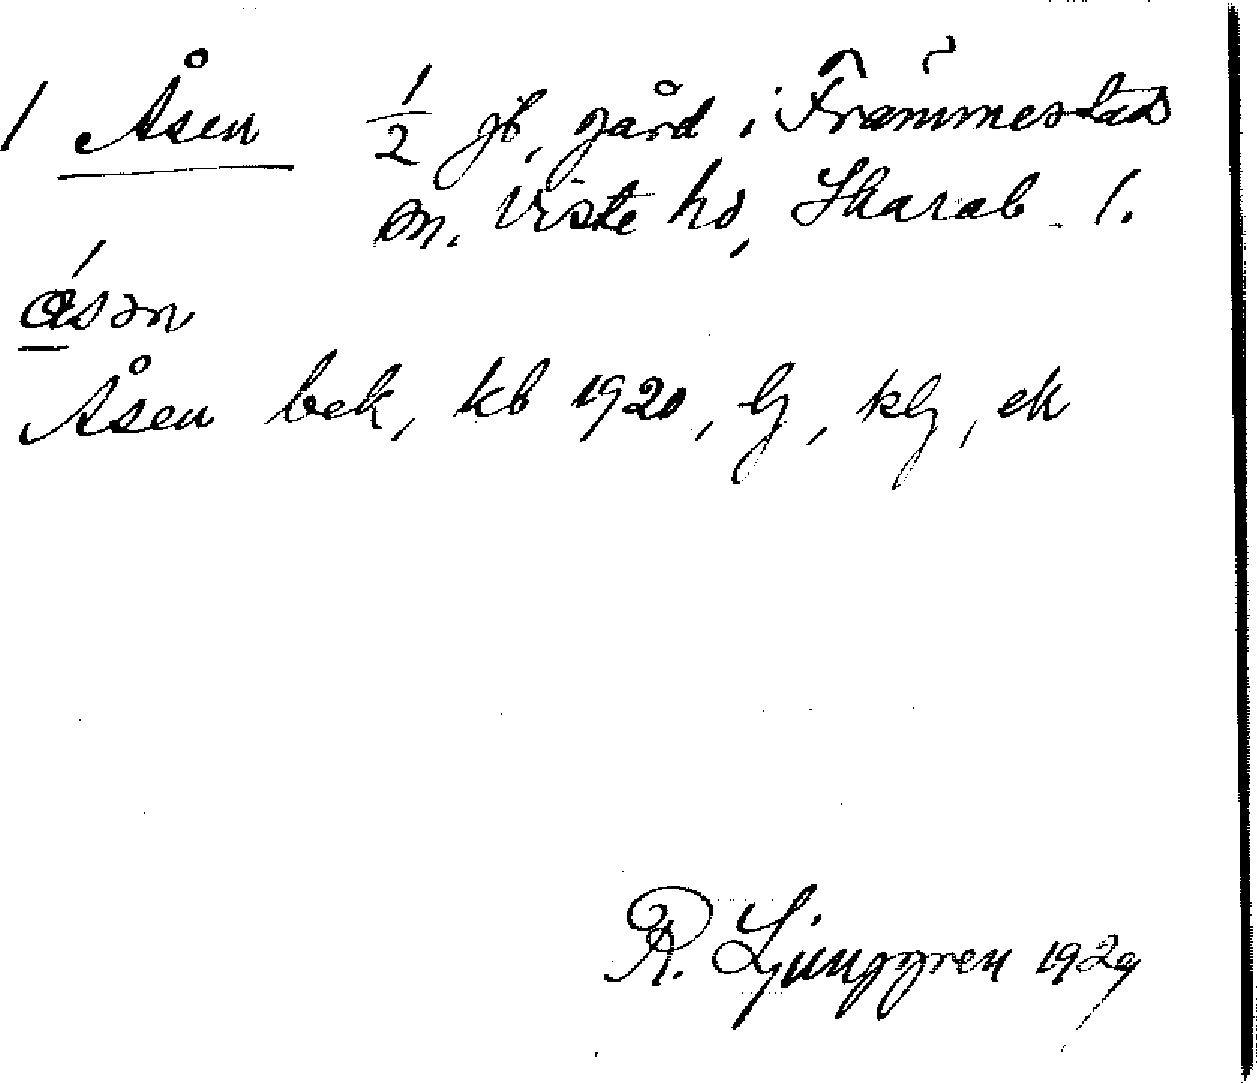 1 Åsen ½ gb, gård i Främmestads
sn. Viste hd, Skarab. l.
ásən
Åsen bek, kb 1920, lg, klg, ek
R. Ljunggren 1929